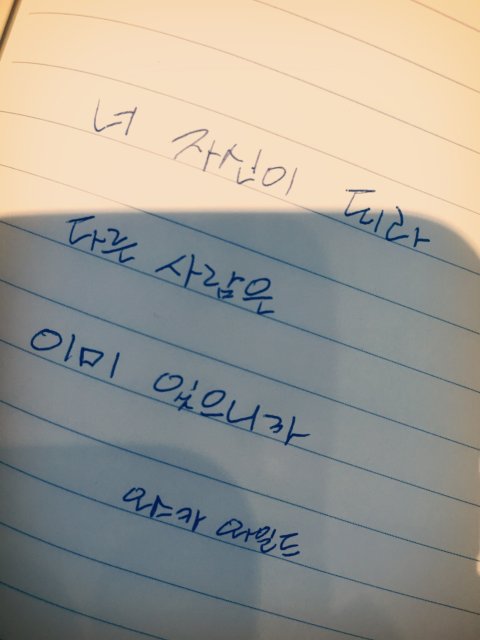 너 자신이 되라
다른 사람은
이미 있으니까
오스카 와일드